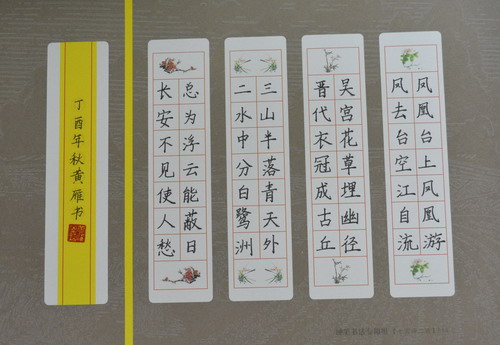 凤凰台上凤凰游
凤去台空江自流
吴宫花草埋幽径
晋代衣冠成古丘
三山半落青天外
二水中分白鹭洲
总为浮云能蔽日
长安不见使人愁
丁酉年秋黄雁书